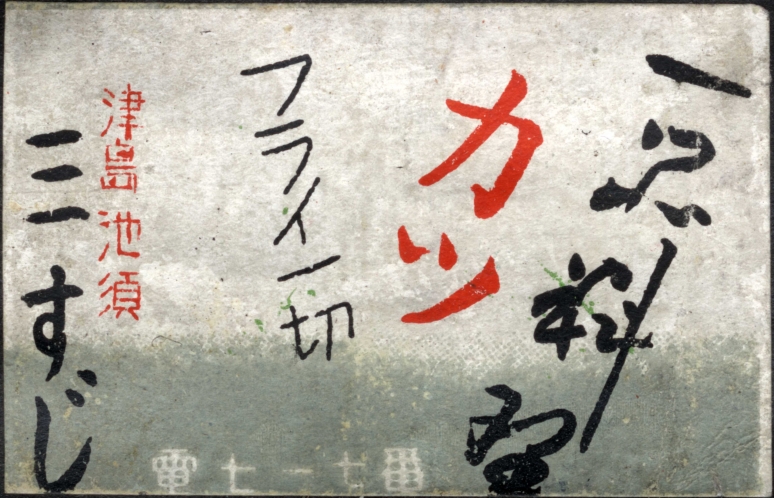 一品料理
カツ
フライ一切
津島池須
三すじ
電七一七番